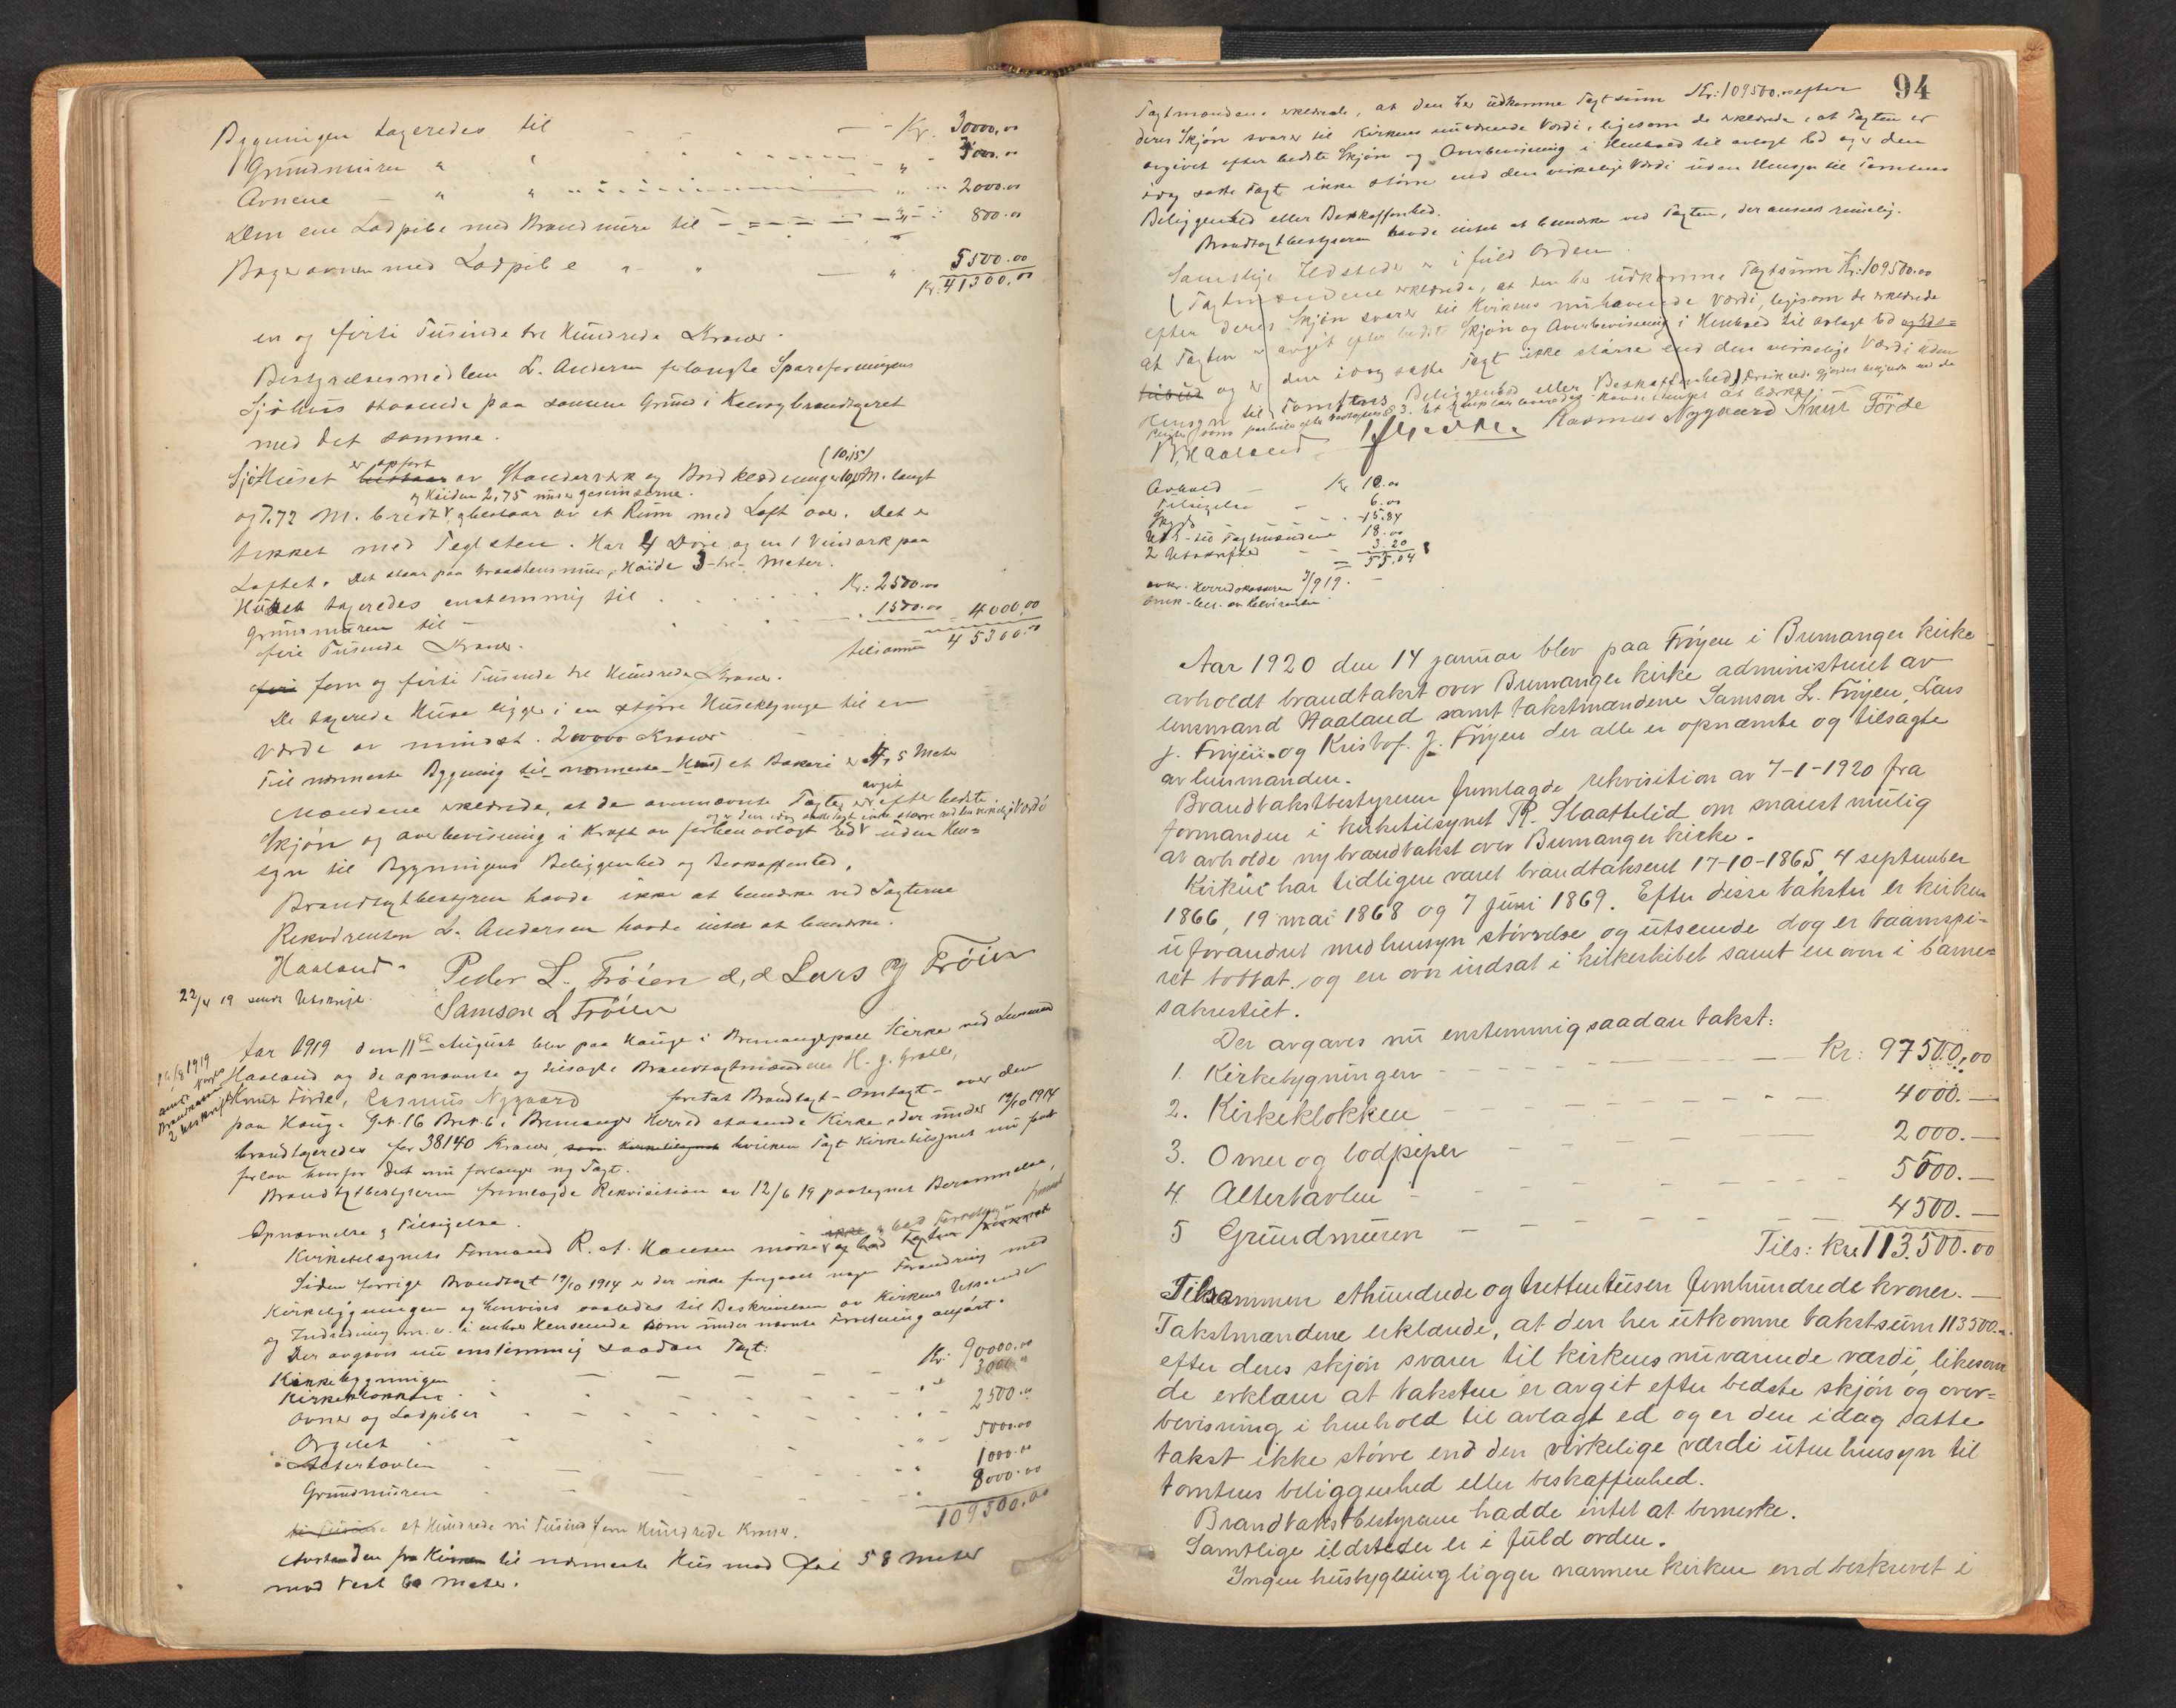 Bygningen taxeredes til - - - Kr. 30000,00
Grundmuren " " - - - " - 3000.00
Ovnene - " " - - - " - 2000.00
Den ene Ladpibe med Brandmure til - - - " - 800.00
Bagerovnen med Ladpibe " " - " 5500.00
Kr. 41300,00
en og firti Tusinde tre Hundrede Kroner.
Bestyrelsesmedlem L. Andersen forlangte Spareforeningens
Sjøhus staaende paa samme Grund i brandtaxeret
med det samme.
Sjøhuset er opført bestaar av Standerverk og Bordklædning er 10,5 M. langt (10,15)
og 7.72 M. bredt og Høiden 2,75 under gesimserne. og bestaar av et Rum med Loft over. Det er
tækket med Teglsten. Har 4 Døre og en 1 Vindark paa
Loftet. Det staar paa Graastensmur, Høide 3 - tre - Meter.
Huset taxeredes enstemmig til . . . Kr: 2500.00
Grundmuren til - . . . 1500.00 - 4000,00
fire Tusende Kroner. tilsammen 45300.00
firi fem og firti Tusinde tre Hundrede Kroner.
De taxerede Huse ligger i en større Huseklynge til en
Værdi av mindst 200000 Kroner
Til nærmeste Bygning til nærmeste Hus) et Bakeri er 4,5 Meter
Mændene erklærede, at de ovennævnte Taxter er avgit efter bedste
Skjøn og overbevisning i Kraft av forhen avlagt Ed og er den idag satte taxt ikke større end den virkelige Værdi uden Hen=
syn til Bygningens Beliggenhed og Beskaffenhed.
Brandtaxtbestyreren havde ikke at bemærke ved Taxterne
Rekvirenten L. Andersen havde intet at bemærke.
Haaland. Peder L. Frøien d, d Lars J Frøien
22/4 19 sendt Utskrift. Samson L Frøien
Aar 1919 den 11te August blev paa Hauge i Bremangerpoll Kirke ved Lensmand
Haaland og de opnævnte og tilsagte Brandtaxtmændene H. J. Grotle,
Knut Førde, Rasmus Nygaard foretat Brandtaxt - Omtaxt - over den
paa Hauge Gr. 16 Br. 6 i Bremanger Herred staaende Kirke, der under 19/10 1914
brandtaxeredes for 38140 Kroner, som Kirketilsynet hvilken Taxt Kirketilsynet nu fandt
for lav hvorfor det nu forlanger ny Taxt.
Brandtaxtbestyreren fremlagde Rekvisition av 12/6 19 paategnet Berammelse,
Opnævnelse og Tilsigelse.
Kirketilsynets Formand R. A. Hansen møtte ikke og bad Forretningen fremmet
Siden forrige Brandtaxt 19/10 1914 er der ikke foregaaet nogen Forandring med
Kirkebygningen og henvises saaledes til Beskrivelsen av Kirkens Utseende
og Indredning m. v. i enhver Henseende som under nævnte Forretning anført.
Der avgaves nu enstemmig saadan Taxt:
Kirkebygningen - - - Kr: 90000.00
Kirkeklokken - - - 3000 "
Ovner og Ladpiber - - - 2500.00
Orgelet - - - 5000.00
Altertavlen - - - 1000.00
Grundmuren - - - 8000.00
109500,00
ti Tusinde et Hundrede ni Tusind fem Hundrede Kroner.
Avstanden fra Kirken til nærmeste Hus mod Øst 58 Meter
mod Vest 60 Meter.
94
Taxtmændene erklærede, at den her udkomne Taxtsum Kr: 109500.00 efter
deres Skjøn svarer til Kirkens nuværende Værdi, ligesom de erklærede, at Taxten er
avgivet efter bedste Skjøn og Overbevisning i Henhold til avlagt Ed og er den
idag satte Taxt ikke større end den virkelige Værdi uden Hensyn til Tomtens
Beliggenhed eller Beskaffenhed.
Brandtaxtbestyreren havde intet at bemærke ved Taxten, der ansees rimelig.
Samtlige Ildsteder er i fuld Orden.
(Taxtmændene erklærede, at den her udkomne Taxtsum Kr: 109500.00
efter deres Skjøn svarer til Kirkens nuhavende Værdi, ligesom de erklærede
at Taxten er avgit efter bedste Skjøn og Overbevisning i Henhold til avlagt Ed
og er den idag satte Taxt ikke større end den virkelige Værdi uden
Hensyn til Tomtens Beliggenhed eller Beskaffenhed)
B, Haaland Rasmus Nygaard Knut Førde
Avhold - Kr 12.00
Tilsigelse - 6.00
Skyds - 15.84
Utg. til Taxtmændene 18.00
2 Utskrifter - - 3.20
= 55.04
Aar 1920 den 14 januar blev paa Frøyen i Bremanger kirke
avholdt brandtakst over Bremanger kirke administreret av
lensmand Haaland samt takstmændene Samson L. Frøyen, Lars
J. Frøyen og Kristof. J. Frøyen der alle er opnævnte og tilsagte
av lensmanden.
Brandtakstbestyreren fremlagde rekvisition av 7-1-1920 fra
formanden i kirketilsynet R. Slaattelid om snarest mulig
at avholde ny brandtakst over Bremanger kirke.
Kirken har tidligere været brandtakseret 17-10-1865, 4 september
1866, 19 mai 1868 og 7 juni 1869. Efter disse takster er kirken
uforandret med hensyn størrelse og utseende dog er taarnspi=
ret tottat, og en ovn indsat i kirkeskibet samt en ovn i barne=
sakrestiet.
Der avgaves nu enstemmig saadan takst:
1. Kirkebygningen - - - kr: 97500,00
2. Kirkeklokken - - - 4000.—
3. Ovner og lodpiper - - - 2000.—
4 Altertavlen - - - 5500.—
5 Grundmuren - - - 4500.—
Tils: kr. 113.500.00
Tilsammen ethundrede og trettentusen femhundrede kroner. —
Takstmændene erklærede, at den her utkomne takstsum 113500.-
efter deres skjøn svarer til kirkens nuværende værdi, likesom
de erklærer at taksten er avgit efter bedste skjøn og over=
bevisning i henhold til avlagt ed og er den idag satte
takst ikke større end den virkelige værdi uten hensyn til
tomtens beliggenhed eller beskaffenhed.
Brandtakstbestyreren hadde intet at bemerke.
Samtlige ildsteder er i fuld orden.
Ingen husbygning ligger nærmere kirken end beskrevet i